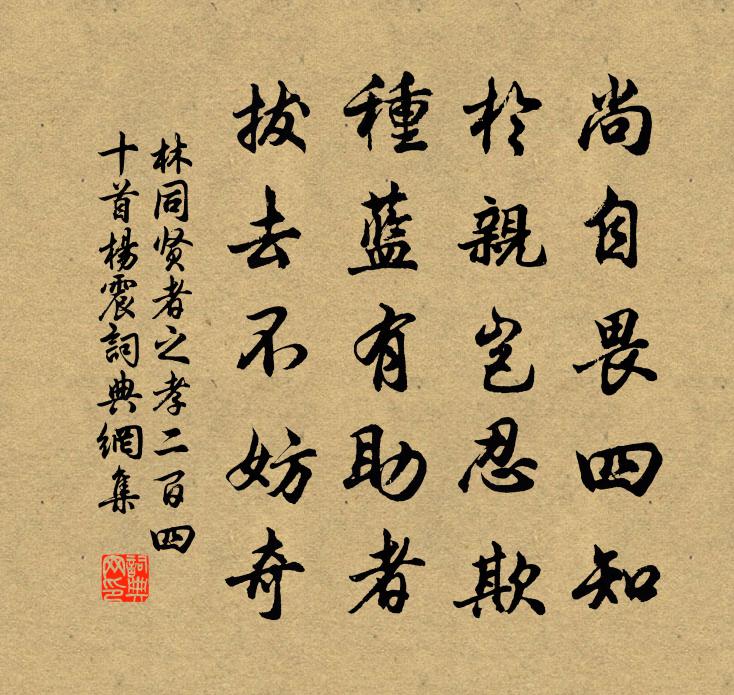 尚自畏四知
於親豈忍欺
種藍有助者
拔去不妨奇
林同贤者之孝二百四
十首楊震詞典網集
詞典
网印